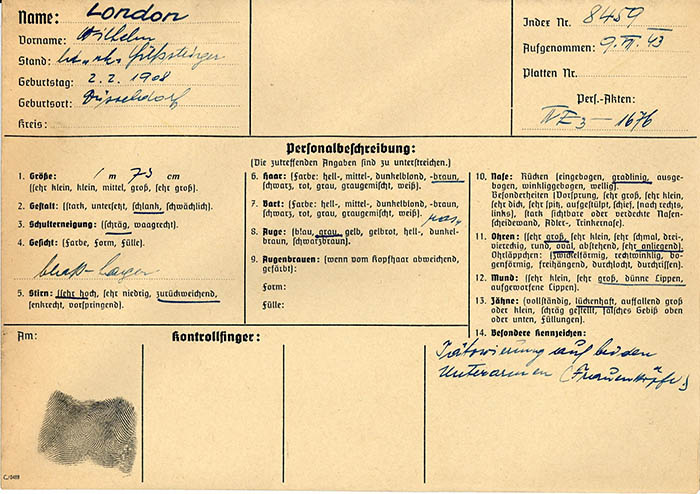 Name: London
Vorname: Wilhelm
Stand:
Geburtstag: 2. 2. 1908
Geburtsort: Düsseldorf
Kreis:
Index Nr. 8459
Aufgenommen: 9. 43
Platten Nr.
Pers.-Akten:
1676
Personalbeschreibung:
(Die zutreffenden Angaben sind zu unterstreichen.)
1. Größe: 1 m 73 cm
(sehr klein, klein, mittel, groß, sehr groß).
2. Gestalt: (stark, untersetzt, schlank, schwächlich).
3. Schulterneigung: (schräg, waagrecht).
4. Gesicht: (Farbe, Form, Fülle).
5. Stirn: (sehr hoch, sehr niedrig, zurückweichend,
senkrecht, vorspringend).
6. Haar: (Farbe: hell-, mittel-, dunkelblond, -braun,
schwarz, rot, grau, graugemischt, weiß).
7. Bart: (Farbe: hell-, mittel-, dunkelblond, -braun,
schwarz, rot, grau, graugemischt, weiß).
8. Auge: (blau, grau, gelb, gelbrot, hell-, dunkel-
braun, schwarzbraun).
9. Augenbrauen: (wenn vom Kopfhaar abweichend,
gefärbt):
Form:
Fülle:
10. Nase: Rücken (eingebogen, gradlinig, ausge-
bogen, winkliggebogen, wellig).
Besonderheiten (Vorsprung, sehr groß, sehr klein,
sehr dick, sehr spitz, aufgestülpt, schief, (nach rechts,
links), stark sichtbare oder verdeckte Nasen-
scheidewand, Adler-, Trinkernase).
11. Ohren: (sehr groß, sehr klein, sehr schmal, drei-,
viereckig, rund, oval, abstehend, sehr anliegend).
Ohrläppchen: (zwickelförmig, rechtwinklig, bo-
genförmig, freihängend, durchlocht, durchrissen).
12. Mund: (sehr klein, sehr groß, dünne Lippen,
aufgeworfene Lippen).
13. Zähne: (vollständig, lückenhaft, auffallend groß
oder klein, schräg gestellt, falsches Gebiß oben
oder unten, Füllungen).
14. Besondere Kennzeichen:
Tätowierung auf beiden
Unterarmen (Frauenköpfe)
Am:
Kontrollfinger: